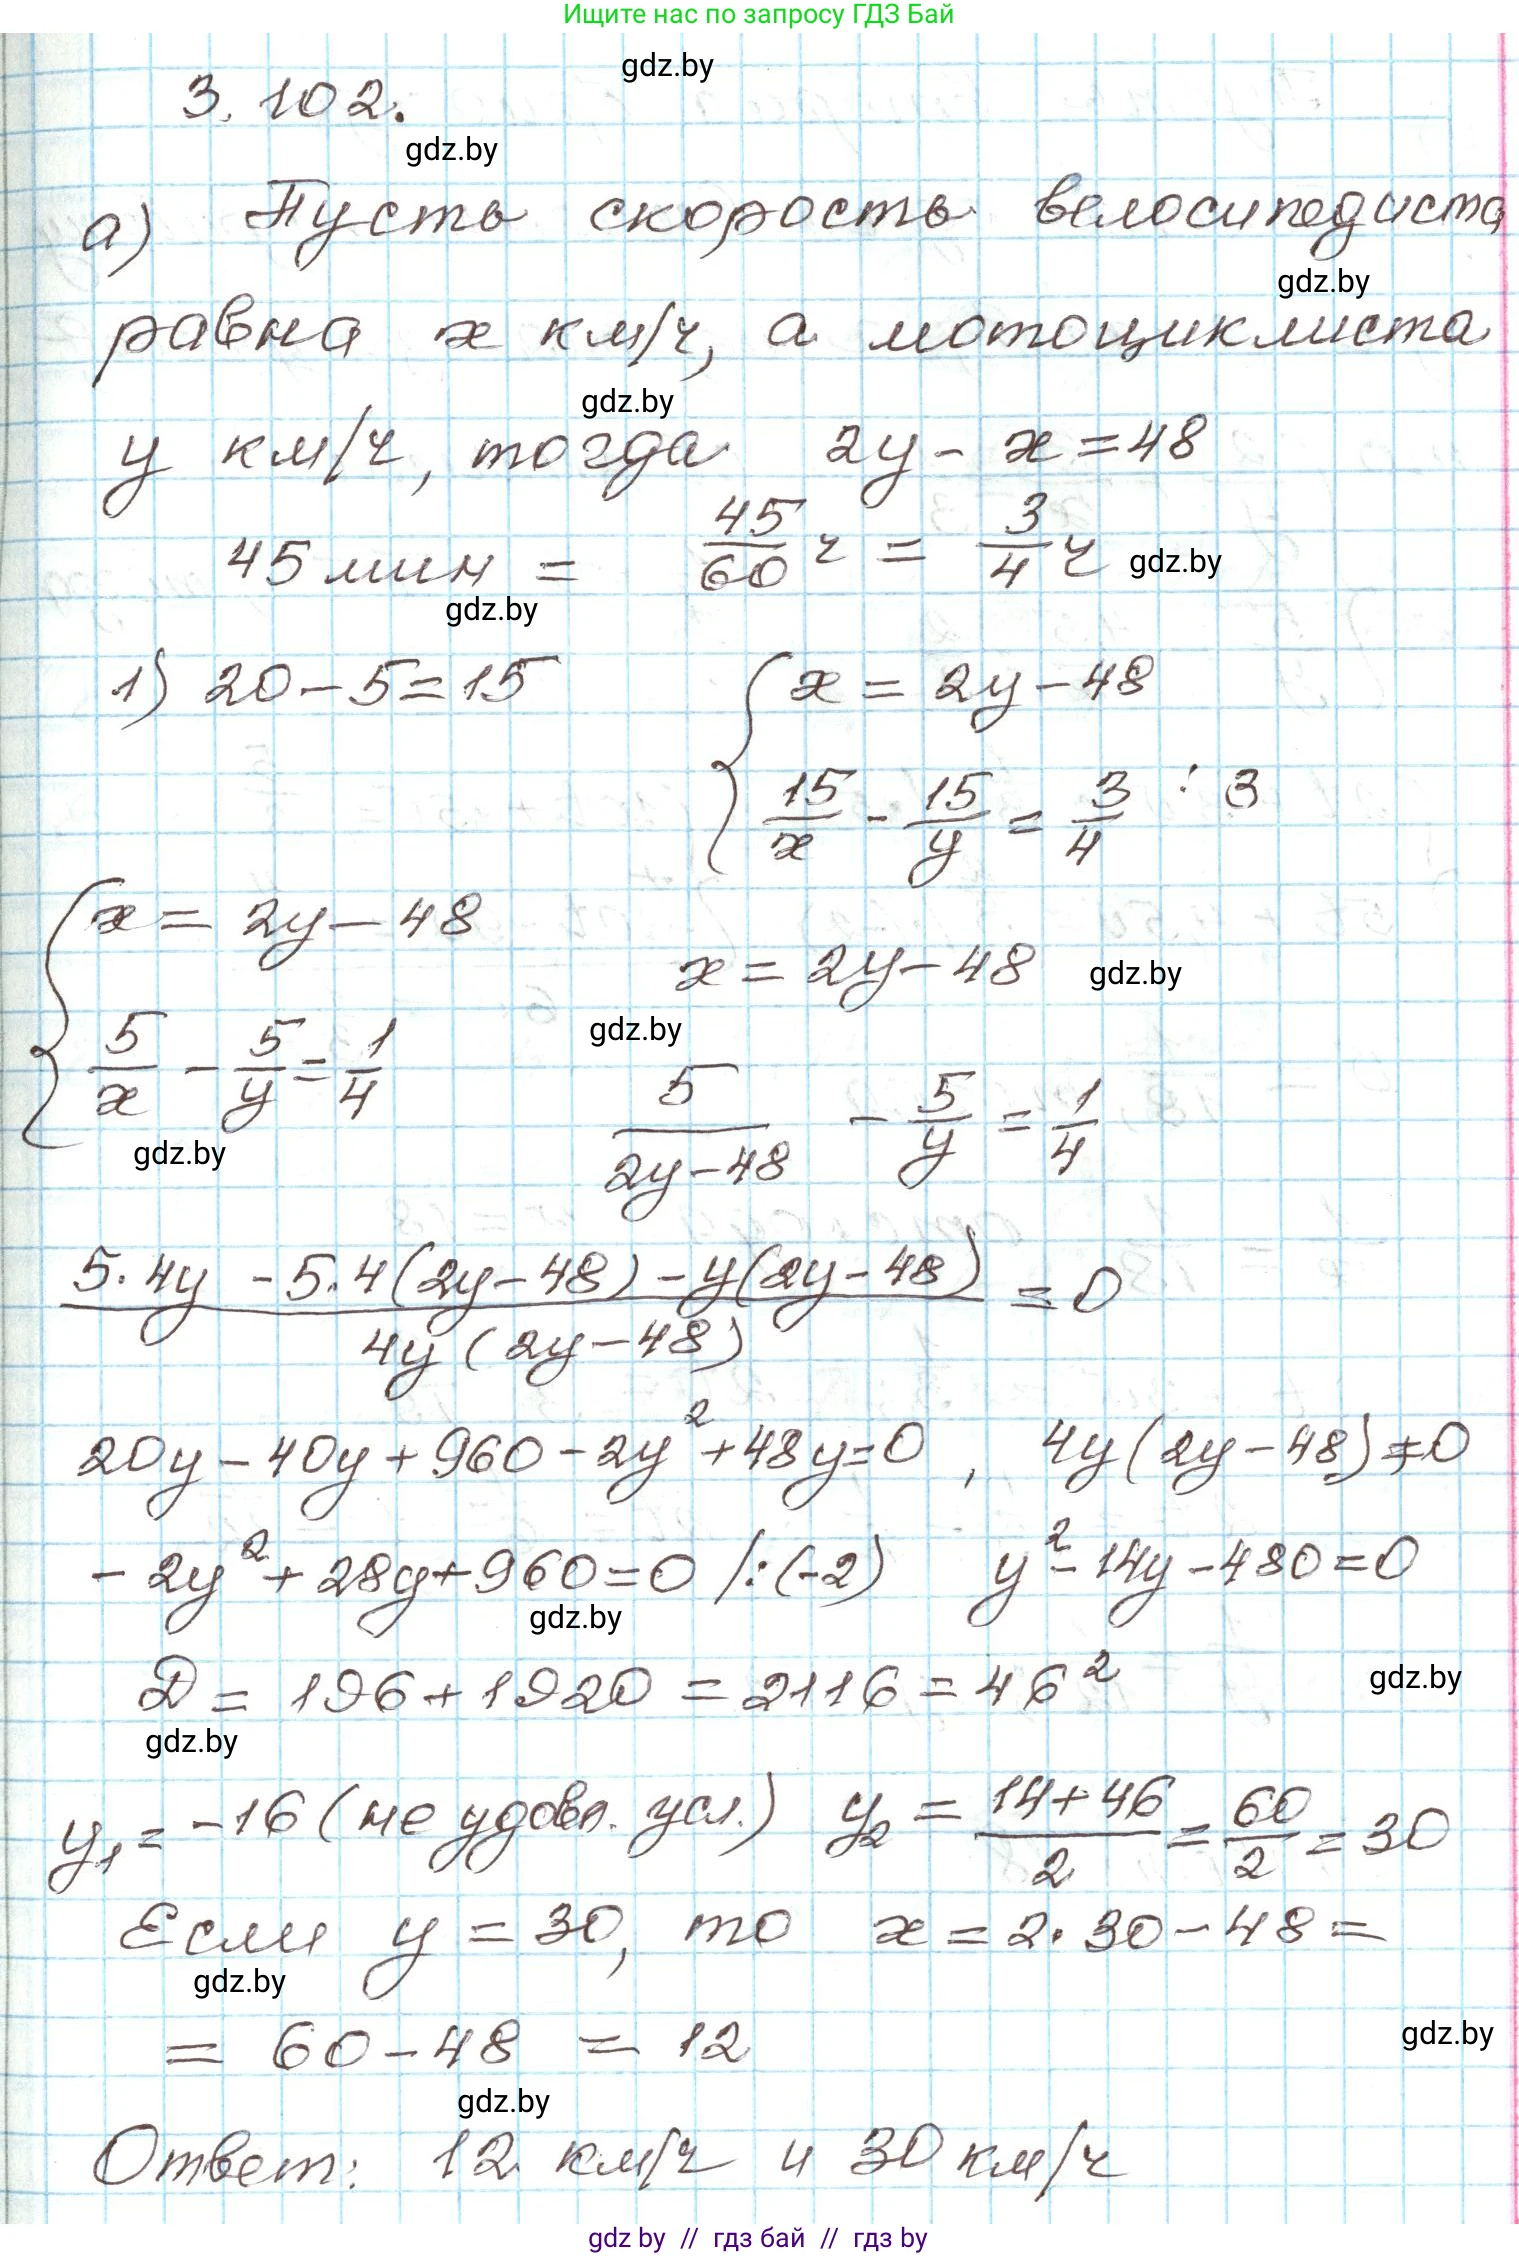 Ищите нас по запросу ГДЗ Бай
gdz.by
3.102.
gdz.by
а) Пусть скорость велосипедиста
gdz.by
равна x км/ч, а мотоциклиста
gdz.by
y км/ч, тогда 2y - x = 48
45 мин = 45/60 ч = 3/4 ч gdz.by
gdz.by
1) 20 - 5 = 15 { x = 2y - 48
15/x - 15/y = 3/4 : 3
{ x = 2y - 48
x = 2y - 48 gdz.by
gdz.by
5/x - 5/y = 1/4
5/(2y - 48) - 5/y = 1/4
gdz.by
(5·4y - 5·4(2y - 48) - y(2y - 48))/(4y(2y - 48)) = 0
20y - 40y + 960 - 2y² + 48y = 0, 4y(2y - 48) ≠ 0
- 2y² + 28y + 960 = 0 /:(-2) y² - 14y - 480 = 0
gdz.by
D = 196 + 1920 = 2116 = 46² gdz.by
gdz.by
y₁ = -16 (не удовл. усл.) y₂ = (14 + 46)/2 = 60/2 = 30
Если y = 30, то x = 2·30 - 48 =
gdz.by
= 60 - 48 = 12 gdz.by
gdz.by
Ответ: 12 км/ч и 30 км/ч
gdz by // гдз бай // гдз by